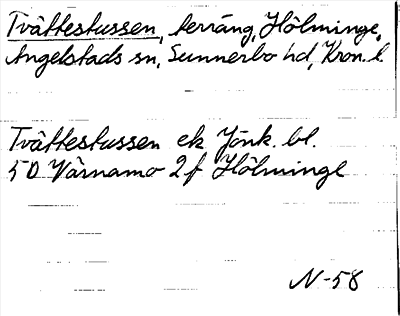 Tvättestussen, terräng, Hölminge,
Angelstads sn, Sunnerbo hd, Kron. l.
Tvättestussen ek Jönk. bl.
5D Värnamo 2f Hölminge
N-58